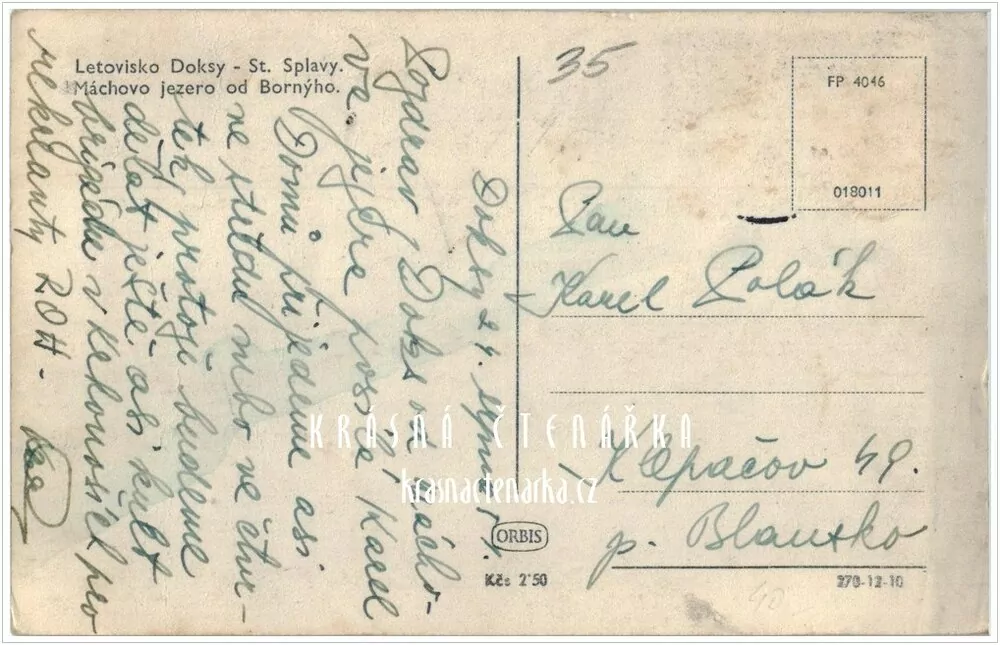 Letovisko Doksy - St. Splavy.
Máchovo jezero od Borného.
35
FP 4046
018011
Doksy 24. srpna 51.
Pozdrav z Doks od Mácho-
va jezera posílá Karel
Domů přijedeme asi
ve středu nebo ve čtvr-
tek, protože budeme
dělat ještě asi
brigádu v Krkonoších pro
rekreanty ROH -
Pan
Karel Polák
Klepačov 49.
p. Blansko
ORBIS
Kčs 2'50
270-12-10
40
KRÁSNÁ ČTENÁŘKA
krasnactenarka.cz